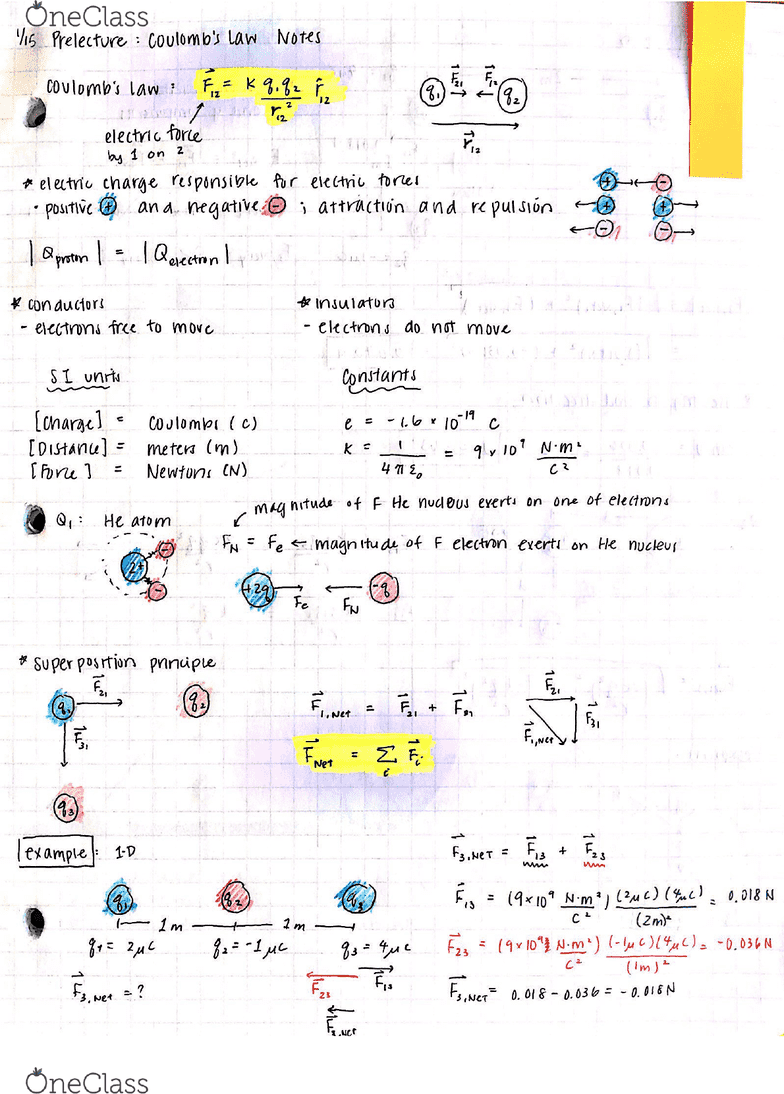 OneClass
1/15 Prelecture : Coulomb's Law Notes
Coulomb's Law : F⃗₁₂ = k q₁q₂ / r₁₂² r̂₁₂
electric force
by 1 on 2
q₁ F⃗₂₁ F⃗₁₂ q₂
r⃗₁₂
* electric charge responsible for electric forces
· positive + and negative - ; attraction and repulsion
+ -
+ +
- -
|Q proton| = |Q electron|
* conductors
- electrons free to move
* insulators
- electrons do not move
SI units
[Charge] = Coulombs (C)
[Distance] = meters (m)
[Force] = Newtons (N)
Constants
e = -1.6 × 10⁻¹⁹ C
k = 1 / 4πε₀ = 9 × 10⁹ N·m² / C²
Q₁: He atom
2+ - -
magnitude of F He nucleus exerts on one of electrons
F_N = F_e ← magnitude of F electron exerts on He nucleus
+2q F_e F_N -q
* superposition principle
q₁ F⃗₂₁ q₂
F⃗₃₁
q₃
F⃗₁,Net = F⃗₂₁ + F⃗₃₁
F⃗Net = Σᵢ F⃗ᵢ
F⃗₂₁
F⃗₃₁
F⃗₁,Net
example : 1-D
q₁ q₂ q₃
1m 1m
q₁ = 2μC q₂ = -1μC q₃ = 4μC
F⃗₃,Net = ?
F⃗₂₃ F⃗₁₃
F⃗₃,Net = F⃗₁₃ + F⃗₂₃
F⃗₁₃ = (9×10⁹ N·m²/C²) (2μC)(4μC) / (2m)² = 0.018 N
F⃗₂₃ = (9×10⁹ N·m²/C²) (-1μC)(4μC) / (1m)² = -0.036 N
F⃗₃,Net = 0.018 - 0.036 = -0.018 N
OneClass